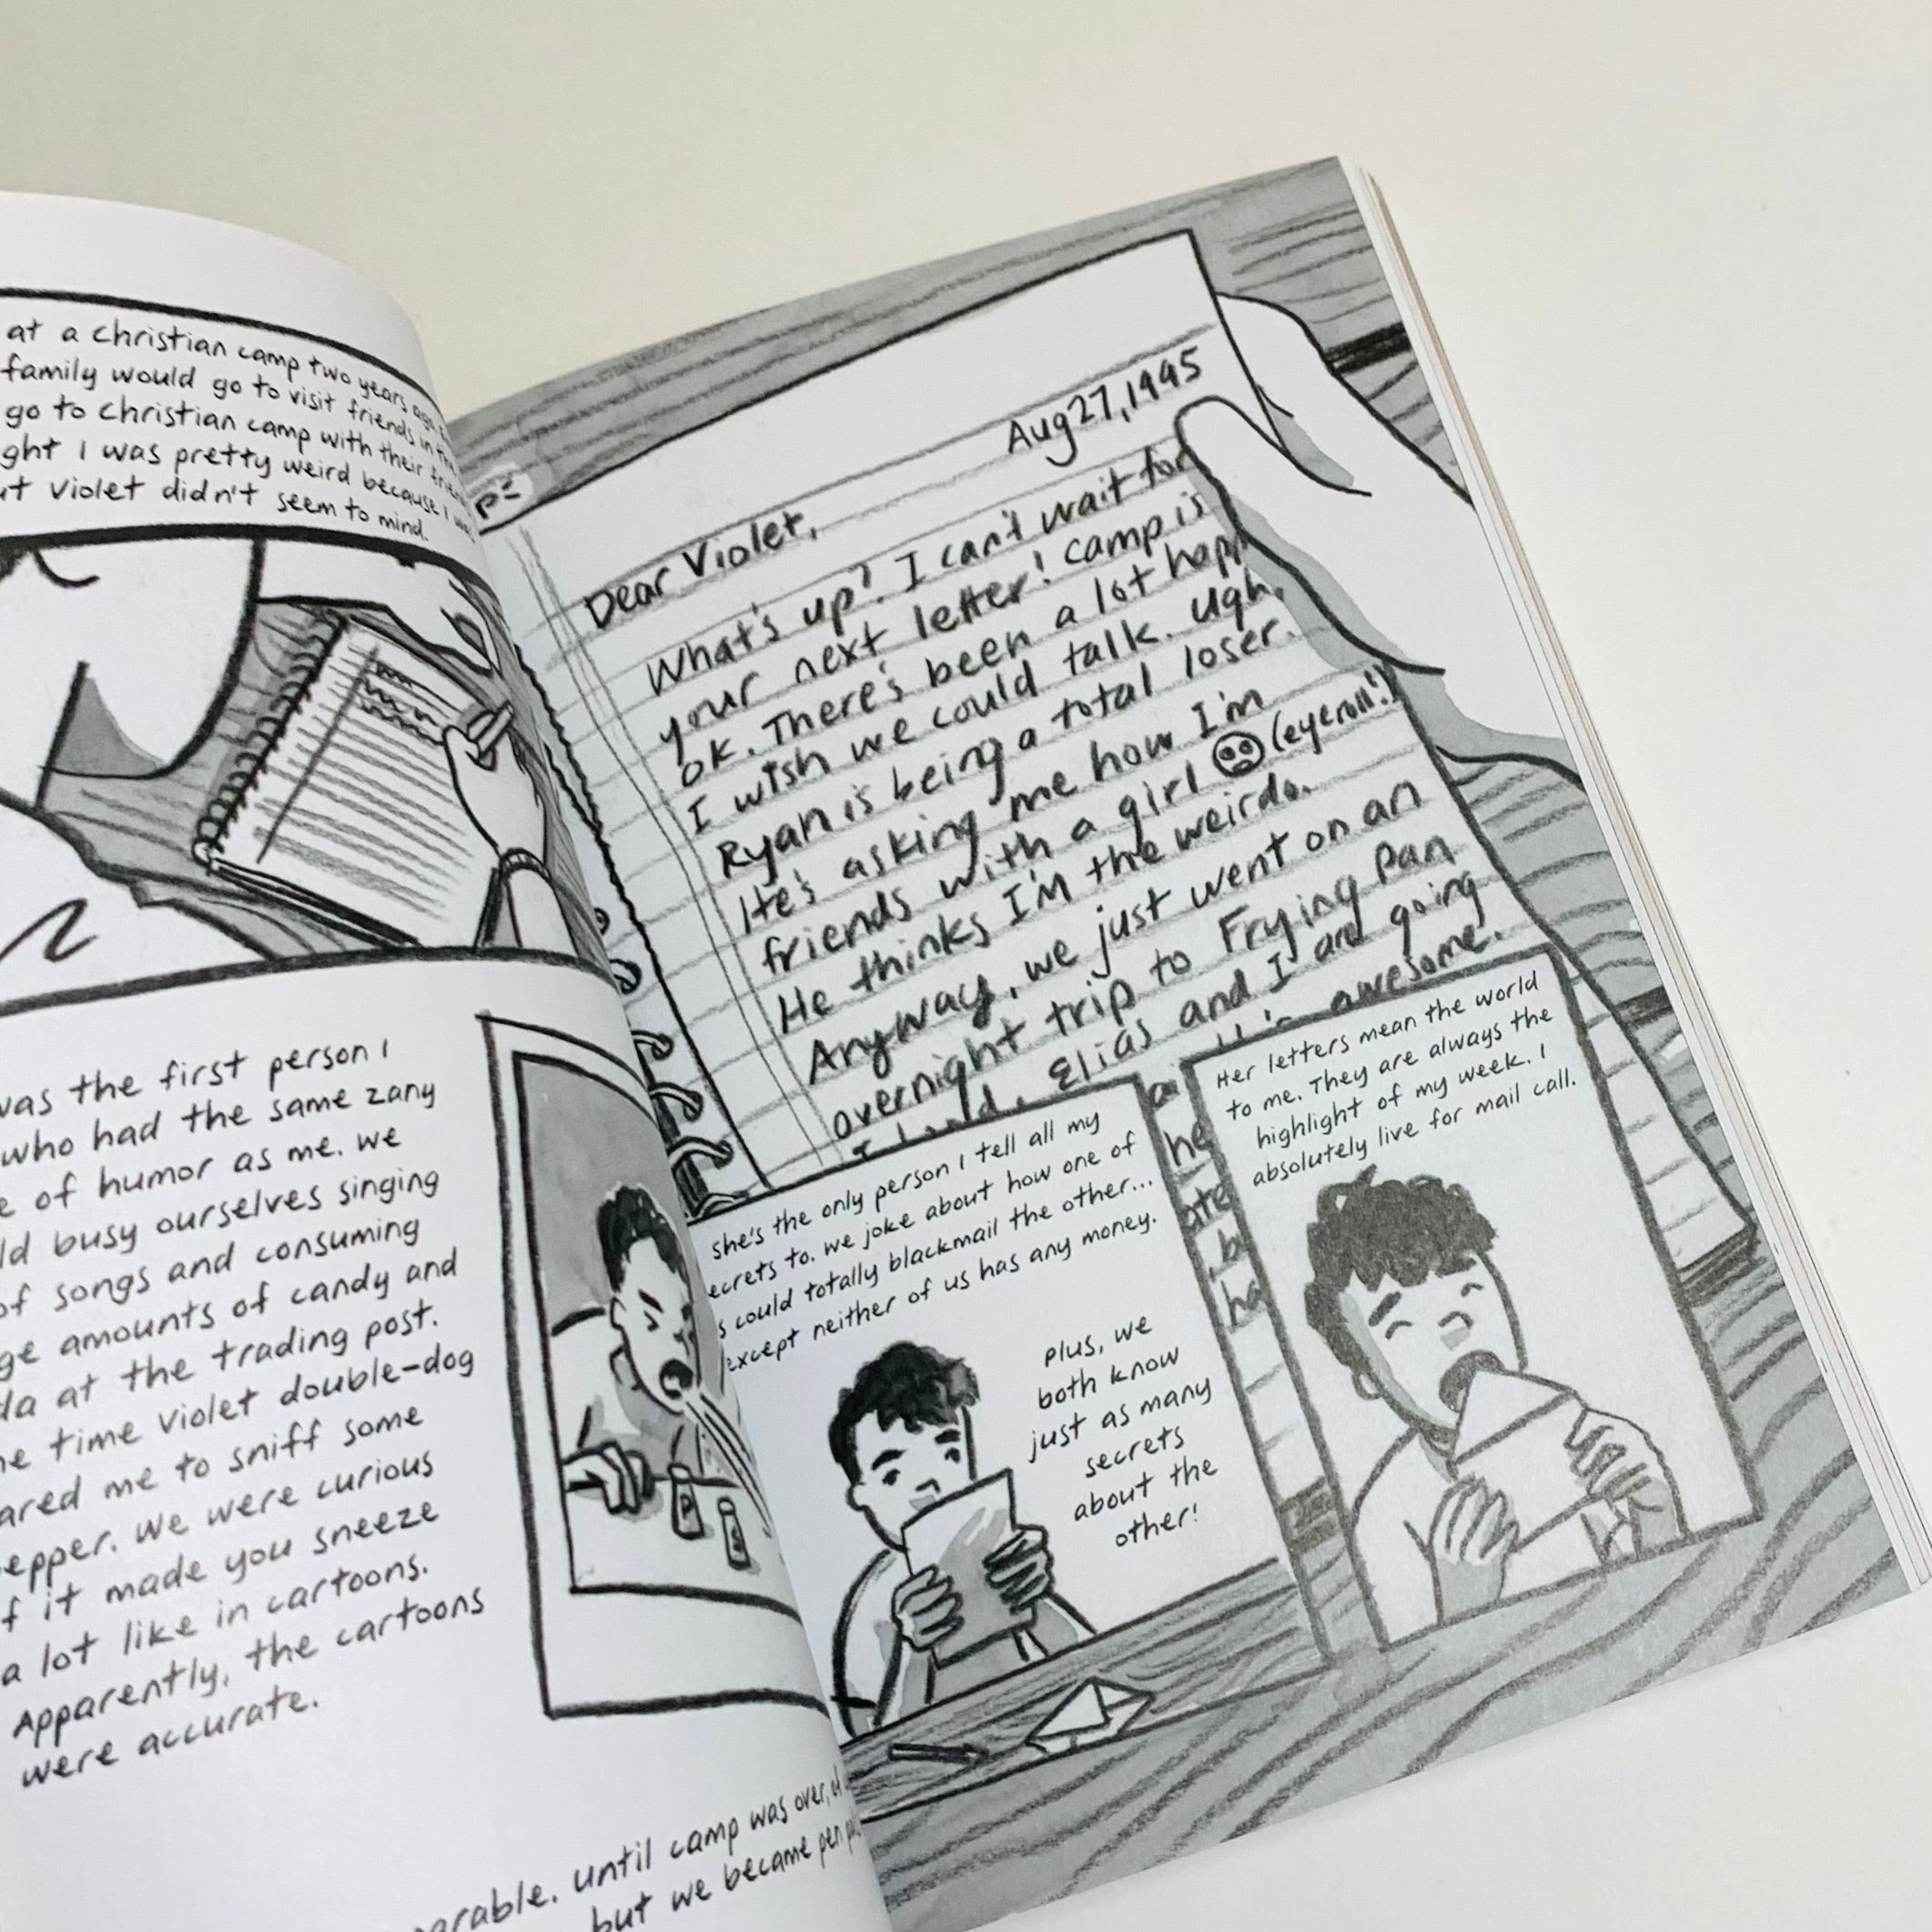 at a christian camp two years ago.
family would go to visit friends in the
go to christian camp with their
I was pretty weird because I
Violet didn't seem to mind.
was the first person I
who had the same zany
of humor as me. we
busy ourselves singing
of songs and consuming
amounts of candy and
at the trading post.
time Violet double-dog
me to sniff some
we were curious
if it made you sneeze
a lot like in cartoons.
Apparently, the cartoons
were accurate.
until camp was over,
but we became pen
Aug 27, 1995
Dear Violet,
What's up? I can't wait for
your next letter! camp is
ok. There's been a lot
I wish we could talk. Ugh.
Ryan is being a total loser.
He's asking me how I'm
friends with a girl (eyeroll!)
He thinks I'm the weirdo.
Anyway, we just went on an
overnight trip to Frying Pan
Elias and I are going
awesome.
she's the only person I tell all my
to. we joke about how one of
could totally blackmail the other...
except neither of us has any money.
plus, we
both know
just as many
secrets
about the
other!
Her letters mean the world
to me. They are always the
highlight of my week. I
absolutely live for mail call.